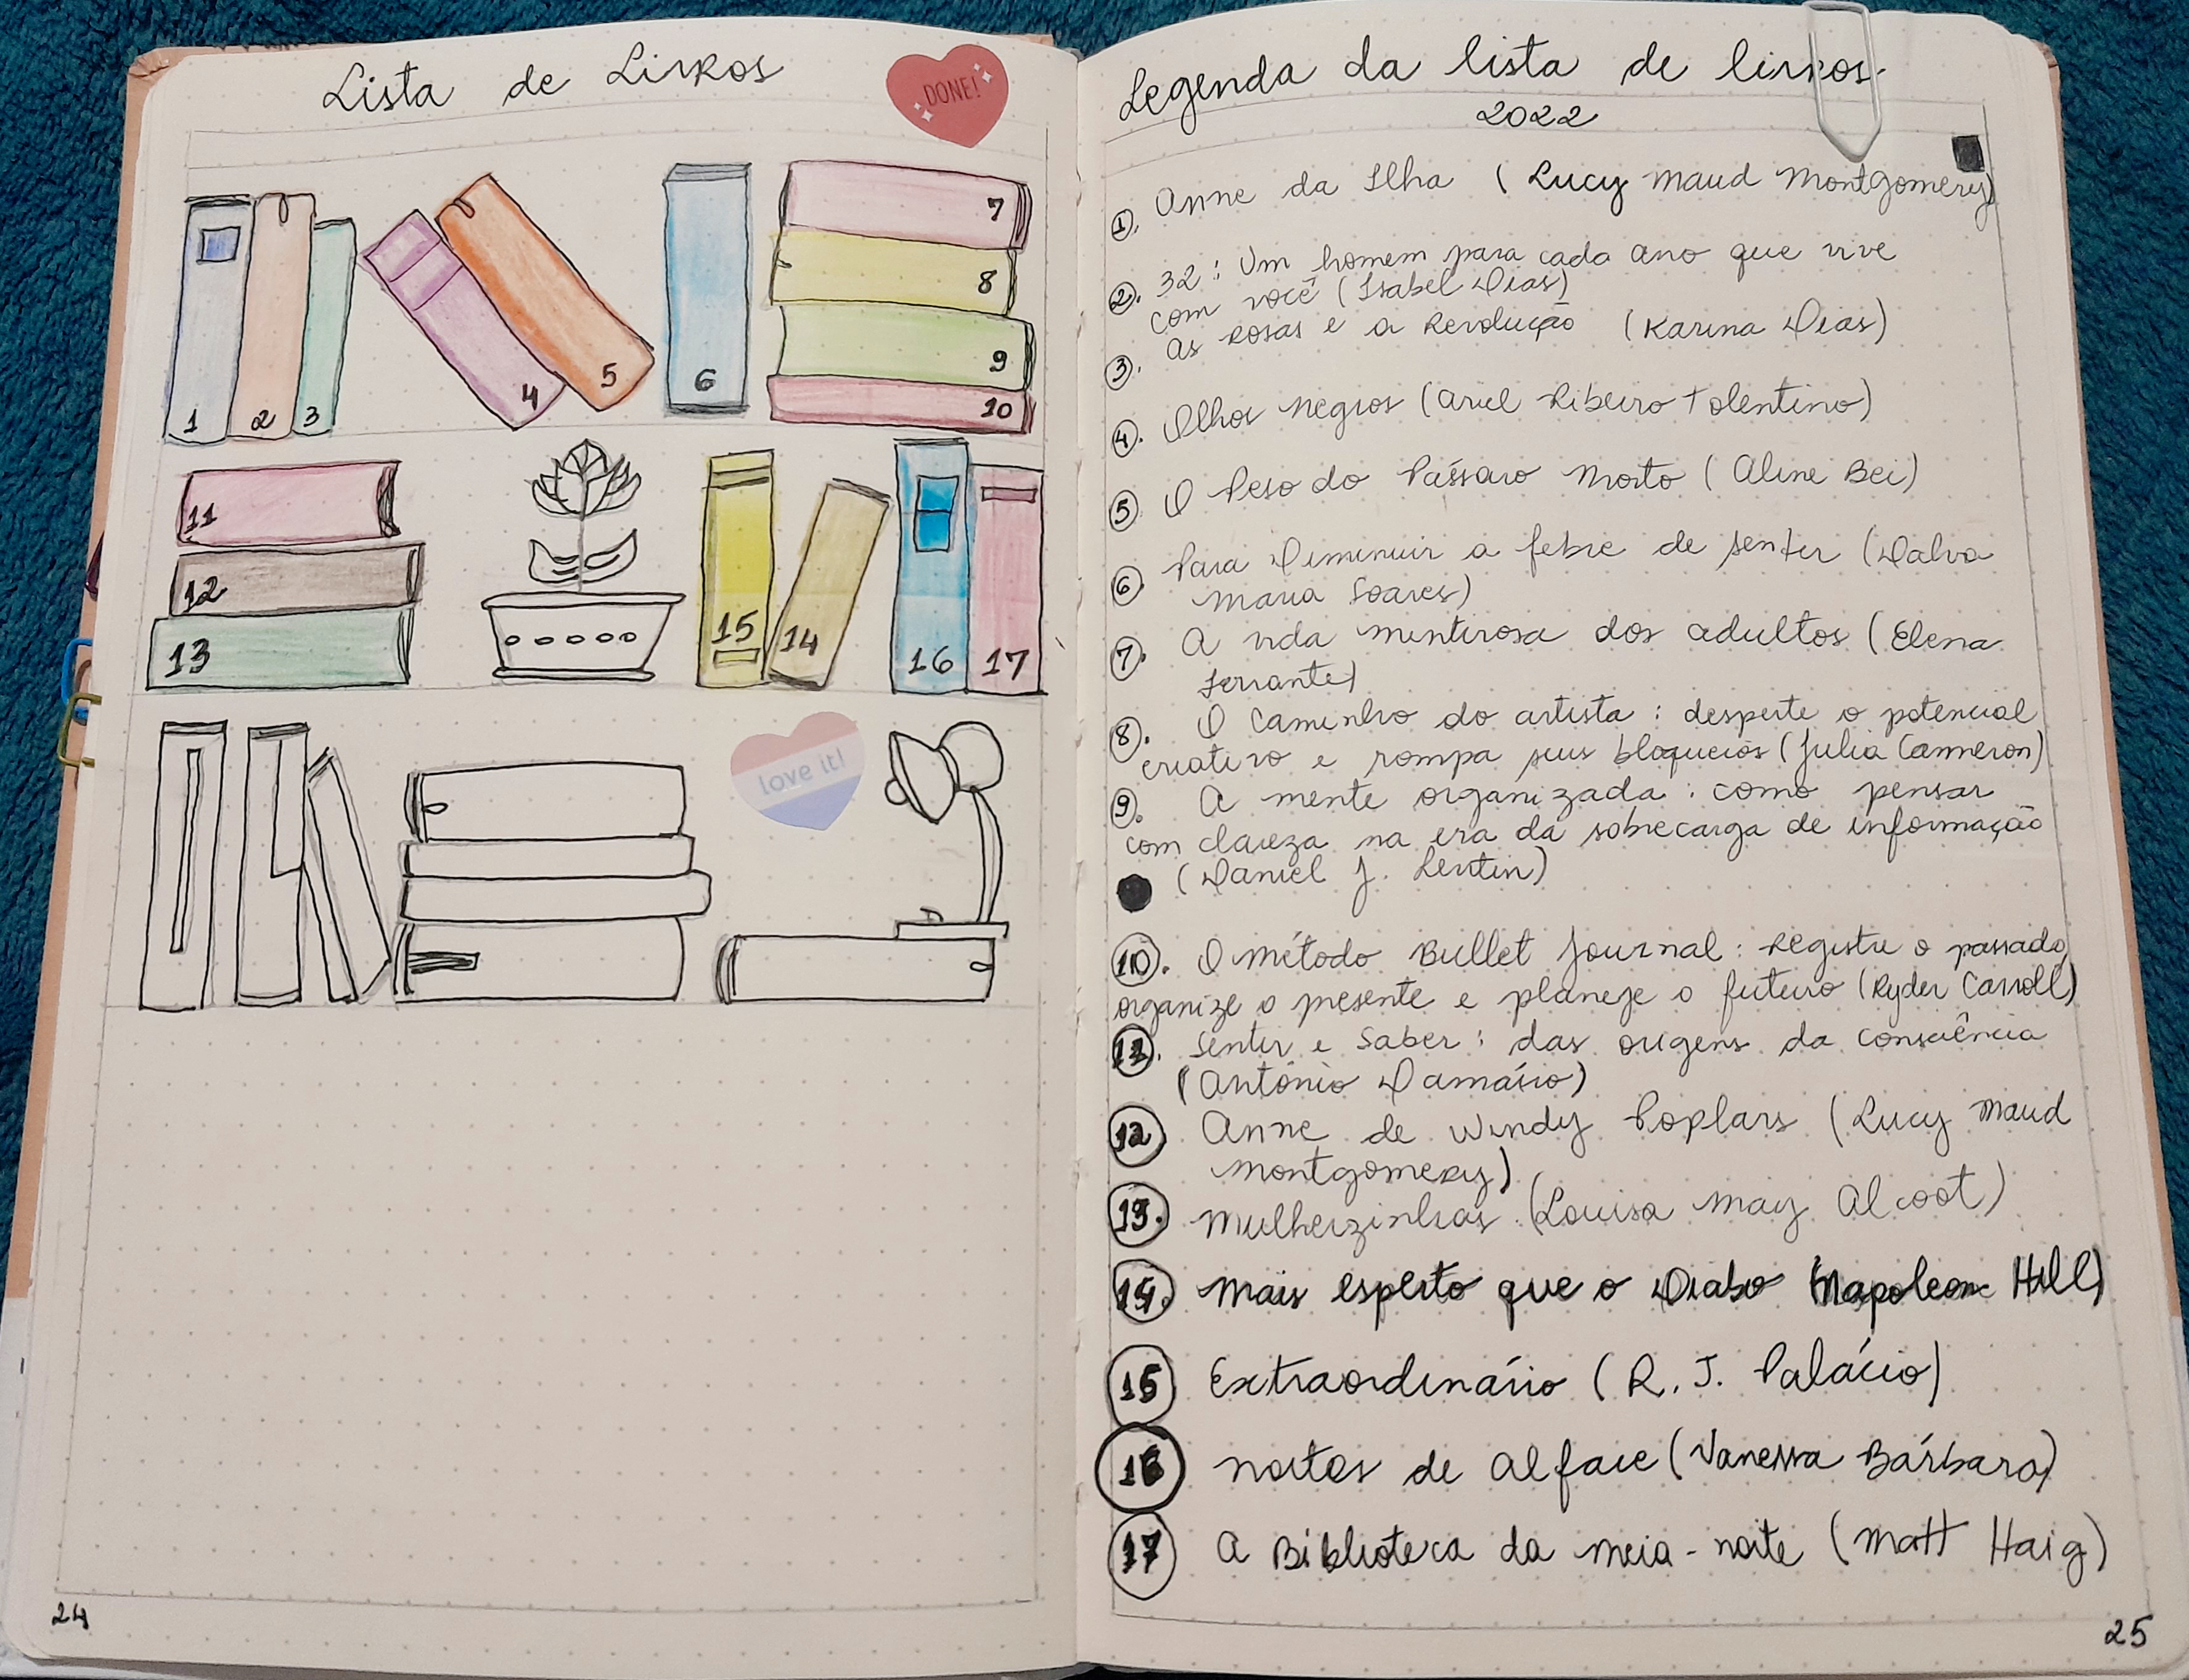 Lista de Livros
DONE!
1
2
3
4
5
6
7
8
9
10
11
12
13
15
14
16
17
love it!
24
Legenda da lista de livros.
2022
1. Anne da Ilha (Lucy Maud Montgomery)
2. 32: Um homem para cada ano que vive
com você (Isabel Dias)
3. As Rosas e a Revolução (Karina Dias)
4. Olhos negros (Ariel Ribeiro Tolentino)
5 O Peso do Pássaro Morto (Aline Bei)
6 Para Diminuir a febre de sentir (Dalva
Maria Soares)
7. A vida mentirosa dos adultos (Elena
Ferrante)
8. O Caminho do artista: desperte o potencial
criativo e rompa seus bloqueios (Julia Cammeron)
9. A mente organizada: como pensar
com clareza na era da sobrecarga de informação
(Daniel J. Levitin)
10. O método Bullet Journal: Registre o passado,
organize o presente e planeje o futuro (Ryder Carroll)
11. Sentir e Saber: das origens da consciência
(António Damásio)
12 Anne de Windy Poplars (Lucy Maud
Montgomery)
13. Mulherzinhas (Louisa May Alcoot)
14. Mais esperto que o Diabo (Napoleon Hill)
15 Extraordinário (R. J. Palácio)
16 Noites de Alface (Vanessa Bárbara)
17 A Biblioteca da meia-noite (Matt Haig)
25